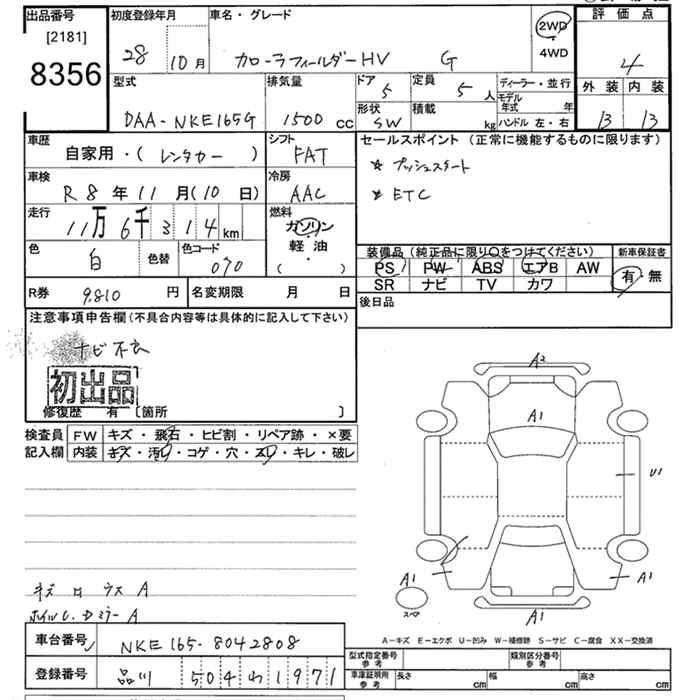 出品番号 [2181] 8356
初度登録年月 28 10月
車名・グレード カローラフィールダーHV G
2WD
4WD
評価点 4
外装 内装
B B
型式 DAA-NKE165G
排気量 1500 cc
ドア 5
形状 SW
定員 5人
積載 kg
ディーラー・並行
モデル年式 年
ハンドル 左・右
車歴 自家用・(レンタカー)
シフト FAT
車検 R8年11月(10日)
冷房 AAC
走行 11万6千314km
燃料 ガソリン
軽油
・
( )
色 白 色替 色コード 070
セールスポイント(正常に機能するものに限ります)
☆ プッシュスタート
☆ ETC
装備品(純正品に限り○をつけてください)
新車保証書
PS PW ABS エアB AW
SR ナビ TV カワ
有・無
R券 9,810円 名変期限 月 日
後日品
注意事項申告欄(不具合内容等は具体的に記入して下さい)
ナビ不良
初出品
修復歴 有 〔箇所 〕
検査員 FW キズ・飛石・ヒビ割・リペア跡・×要
記入欄 内装 キズ・汚れ・コゲ・穴・スレ・キレ・破レ
A2
A1
U1
A1
A1
A1
スペア
キズ ロ ウス A
A-キズ E-エクボ U-凹み W-補修跡 S-サビ C-腐食 XX-交換済
車台番号 NKE165-8042808
登録番号 品川 504わ1971
型式指定番号 参考
類別区分番号 参考
車庫証明用 参考 長さ cm 幅 cm 高さ cm